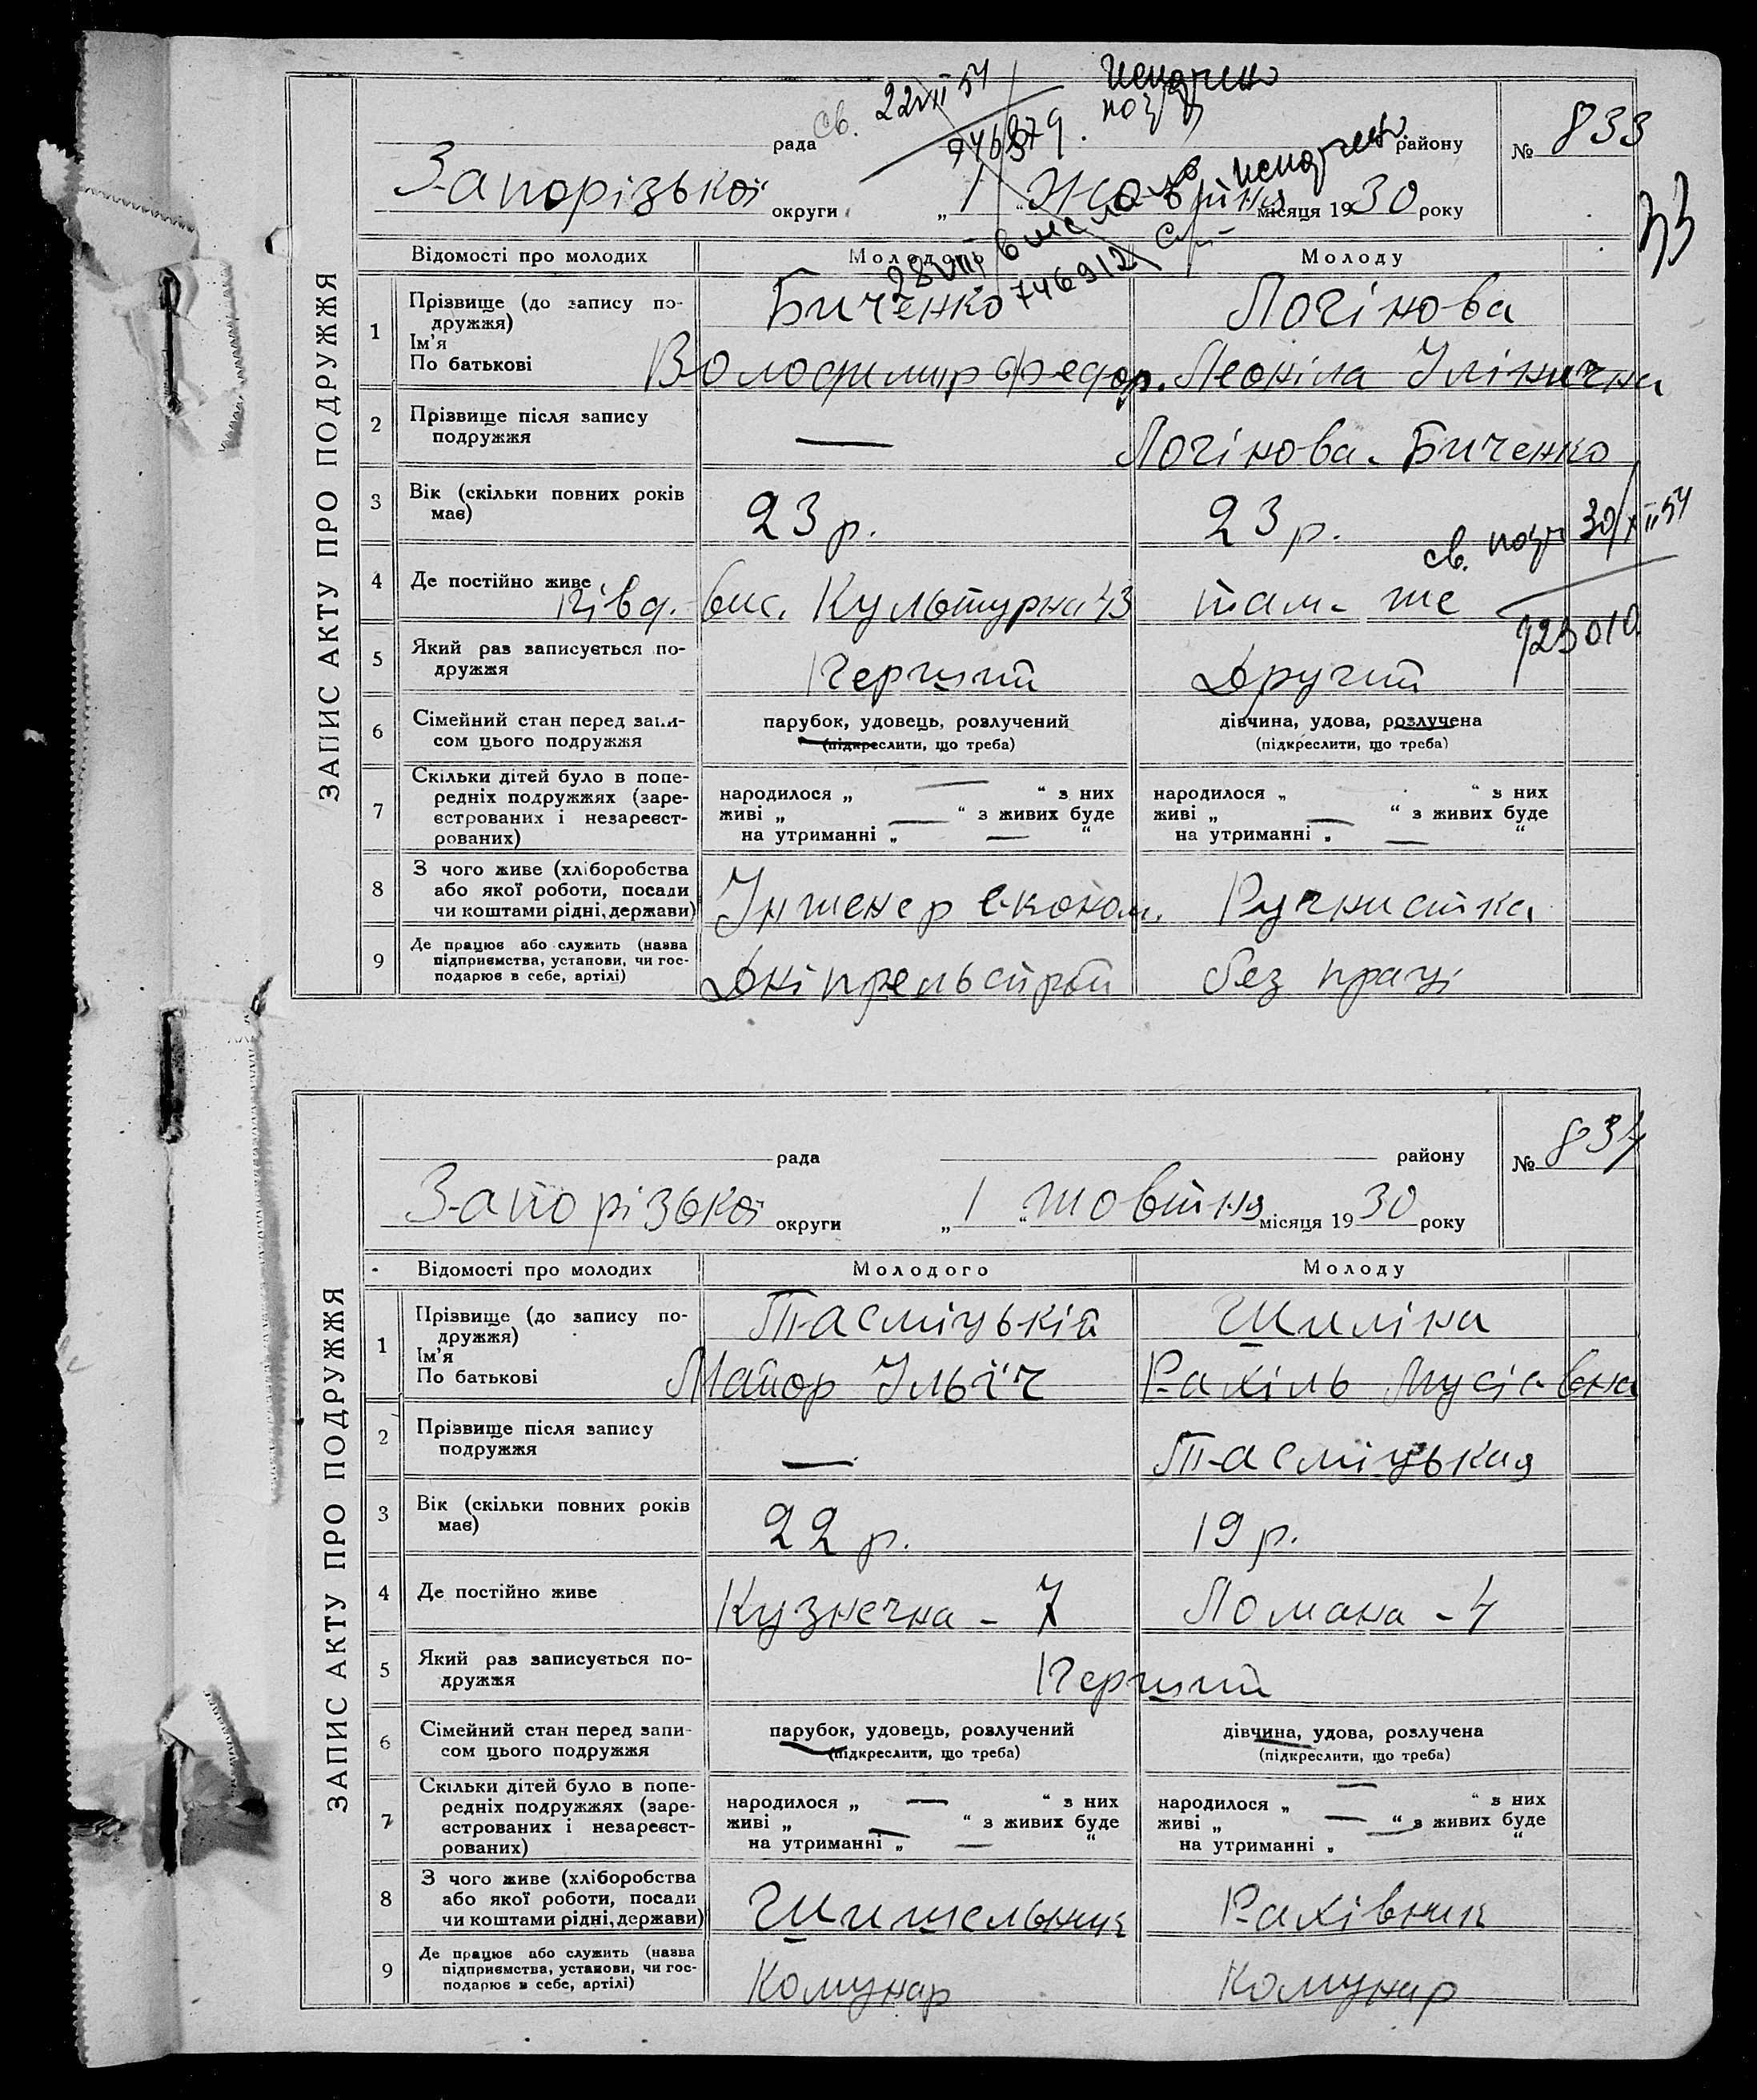 ЗАПИС АКТУ ПРО ПОДРУЖЖЯ
св. 22 VII 54
746879.
рада району № 833
Запорізької округи „1“ Жовтня місяця 1930 року
33
28 VIII
746912
Відомості про молодих Молодого Молоду
1 Прізвище (до запису по-
дружжя)
Ім'я
По батькові
Биченко Логінова
Володимир Федор. Леоніла Ілінична
2 Прізвище після запису
подружжя
— Логінова-Биченко
3 Вік (скільки повних років
має)
23 р. 23 р.
св. 30/XII 54
4 Де постійно живе
Півд. вис. Культурна 43 там-же
923010
5 Який раз записується по-
дружжя
Перший Другий
6 Сімейний стан перед запи-
сом цього подружжя
парубок, удовець, розлучений дівчина, удова, розлучена
(підкреслити, що треба) (підкреслити, що треба)
7 Скільки дітей було в попе-
редніх подружжях (заре-
єстрованих і незареєст-
рованих)
народилося „ — “ з них народилося „ “ з них
живі „ — “ з живих буде живі „ — “ з живих буде
на утриманні „ — “ на утриманні „ — “
8 З чого живе (хліборобства
або якої роботи, посади
чи коштами рідні, держави)
Інженер економ. Ручнистка
9 Де працює або служить (назва
підприємства, установи, чи гос-
подарює в себе, артілі)
Дніпрельстрой без праці
ЗАПИС АКТУ ПРО ПОДРУЖЖЯ
рада району № 834
Запорізької округи „1“ жовтня місяця 1930 року
Відомості про молодих Молодого Молоду
1 Прізвище (до запису по-
дружжя)
Ім'я
По батькові
Тасміцькій Шиліна
Майор Ільїч Рахіль Мусієвна
2 Прізвище після запису
подружжя
— Тасміцькая
3 Вік (скільки повних років
має)
22 р. 19 р.
4 Де постійно живе
Кузнечна - 7 Ломана - 4
5 Який раз записується по-
дружжя
Перший
6 Сімейний стан перед запи-
сом цього подружжя
парубок, удовець, розлучений дівчина, удова, розлучена
(підкреслити, що треба) (підкреслити, що треба)
7 Скільки дітей було в попе-
редніх подружжях (заре-
єстрованих і незареєст-
рованих)
народилося „ — “ з них народилося „ — “ з них
живі „ — “ з живих буде живі „ — “ з живих буде
на утриманні „ — “ на утриманні „ — “
8 З чого живе (хліборобства
або якої роботи, посади
чи коштами рідні, держави)
Шишельник Рахівник
9 Де працює або служить (назва
підприємства, установи, чи гос-
подарює в себе, артілі)
Комунар Комунар